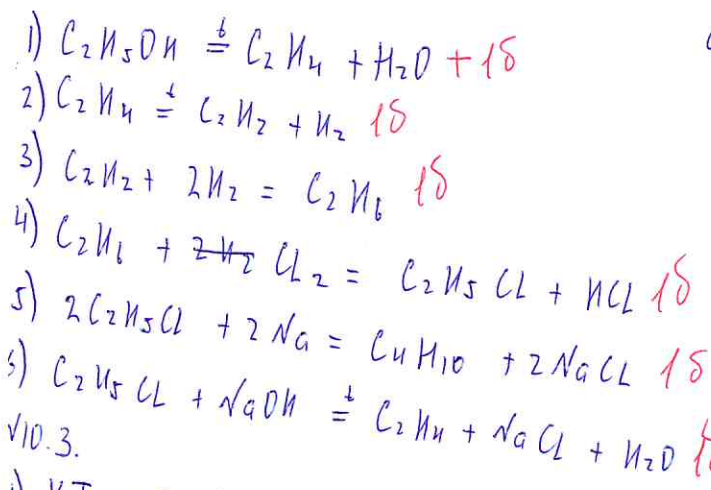 1) C₂H₅OH =ᵗ C₂H₄ + H₂O + 1б
2) C₂H₄ =ᵗ C₂H₂ + H₂ 1б
3) C₂H₂ + 2H₂ = C₂H₆ 1б
4) C₂H₆ + ~~2H₂~~ CL₂ = C₂H₅CL + HCL 1б
5) 2C₂H₅Cl + 2Na = C₄H₁₀ + 2NaCL 1б
6) C₂H₅CL + NaOH =ᵗ C₂H₄ + NaCl + H₂O 1б
√10.3.